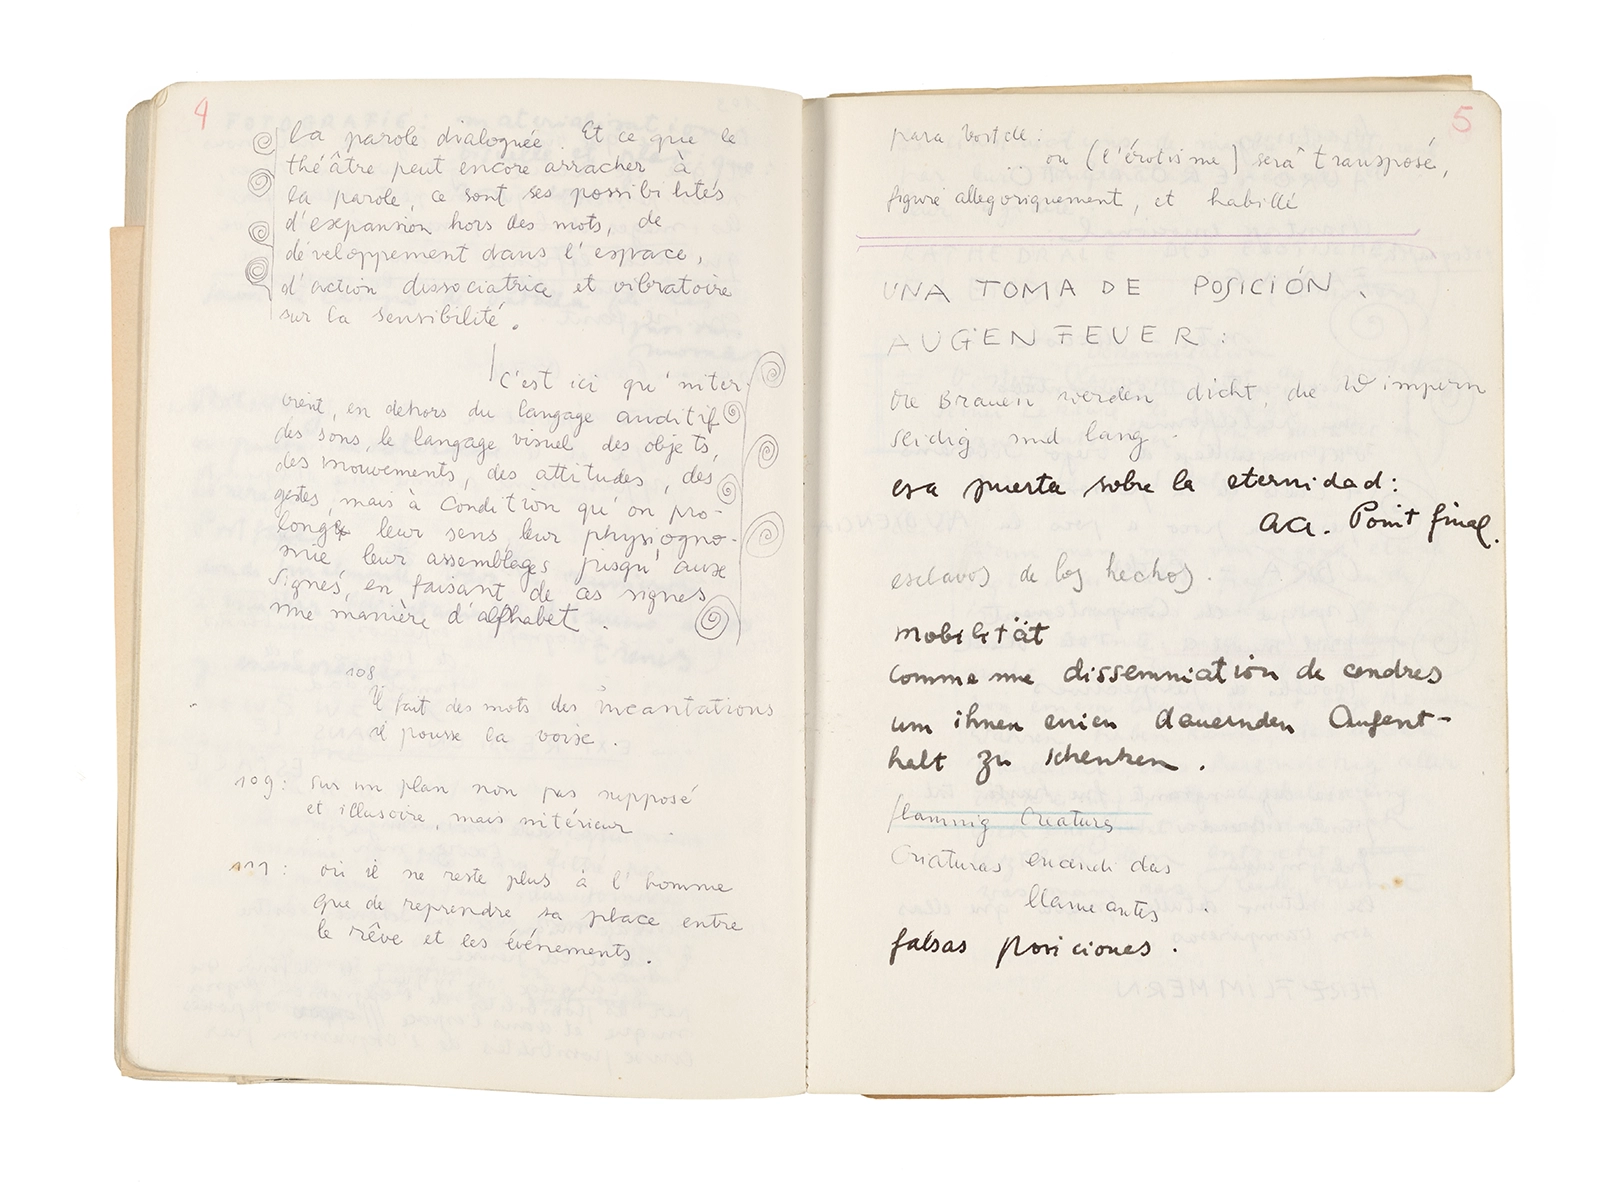 4
la parole dialoguée. Et ce que le
théâtre peut encore arracher à
la parole, ce sont ses possibilités
d'expansion hors des mots, de
développement dans l'espace,
d'action dissociatrice et vibratoire
sur la sensibilité.
c'est ici qu'inter-
vient, en dehors du langage auditif
des sons, le langage visuel des objets,
des mouvements, des attitudes, des
gestes, mais à condition qu'on pro-
longe leur sens leur physiogno-
mie, leur assemblages jusqu'aux
signes, en faisant de ces signes
une manière d'alphabet.
108
Il fait des mots des incantations
il pousse la voix.
109: sur un plan non pas supposé
et illusoire, mais intérieur.
111: où il ne reste plus à l'homme
que de reprendre sa place entre
le rêve et les événements.
5
para
... ou (l'érotisme) sera transposé,
figuré allegoriquement, et habillé
UNA TOMA DE POSICIÓN.
AUGENFEUER:
die Brauen werden dicht, die Wimpern
seidig und lang.
esa puerta sobre la eternidad:
aa. Point final.
esclavos de los hechos.
mobilität
comme une dissemination de cendres
um ihnen einen dauernden Aufent-
halt zu schenken.
flaming Creatures
Criaturas encendidas
llameantes.
falsas posiciones.